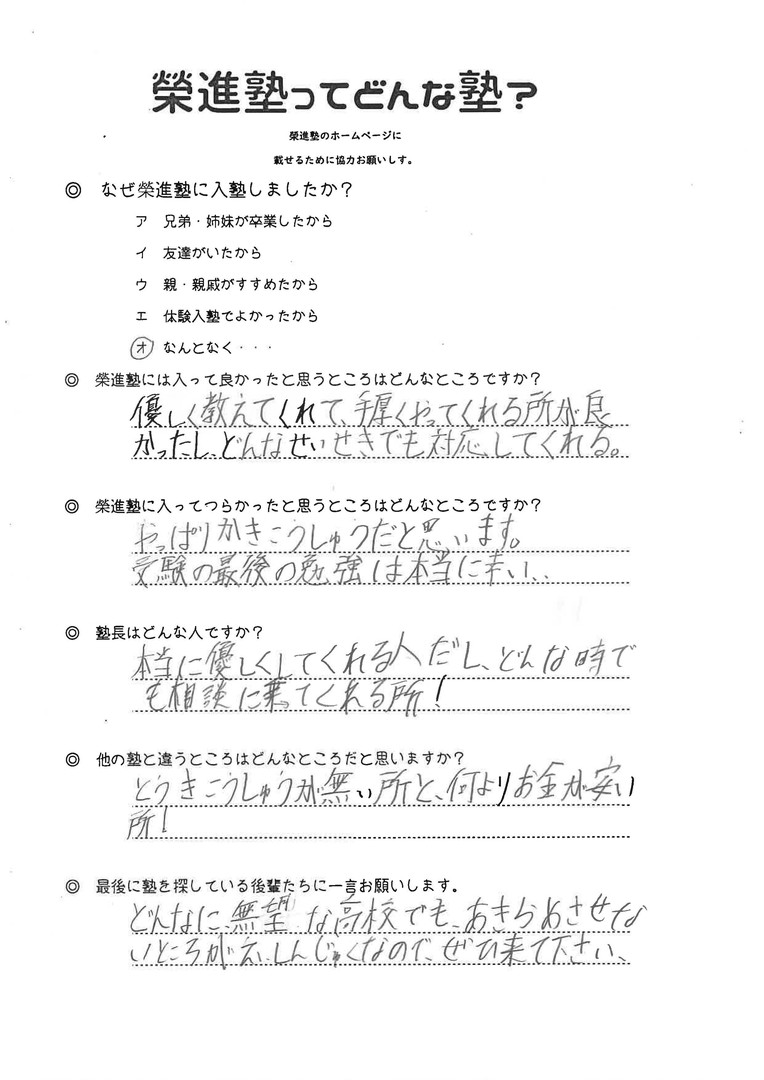 榮進塾ってどんな塾?
榮進塾のホームページに
載せるために協力お願いしす。
◎ なぜ榮進塾に入塾しましたか?
ア 兄弟・姉妹が卒業したから
イ 友達がいたから
ウ 親・親戚がすすめたから
エ 体験入塾でよかったから
オ なんとなく・・・
◎ 榮進塾には入って良かったと思うところはどんなところですか?
優しく教えてくれて、手厚くやってくれる所が良
かったし、どんなせいせきでも対応してくれる。
◎ 榮進塾に入ってつらかったと思うところはどんなところですか?
やっぱりかきこうしゅうだと思います。
受験の最後の勉強は本当に辛い、、
◎ 塾長はどんな人ですか?
本当に優しくしてくれる人だし、どんな時で
も相談に乗ってくれる所!
◎ 他の塾と違うところはどんなところだと思いますか?
とうきこうしゅうが無い所と、何よりお金が安い
所!
◎ 最後に塾を探している後輩たちに一言お願いします。
どんなに無望な高校でも、あきらめさせな
いところがえいしんじゅくなので、ぜひ来て下さい、